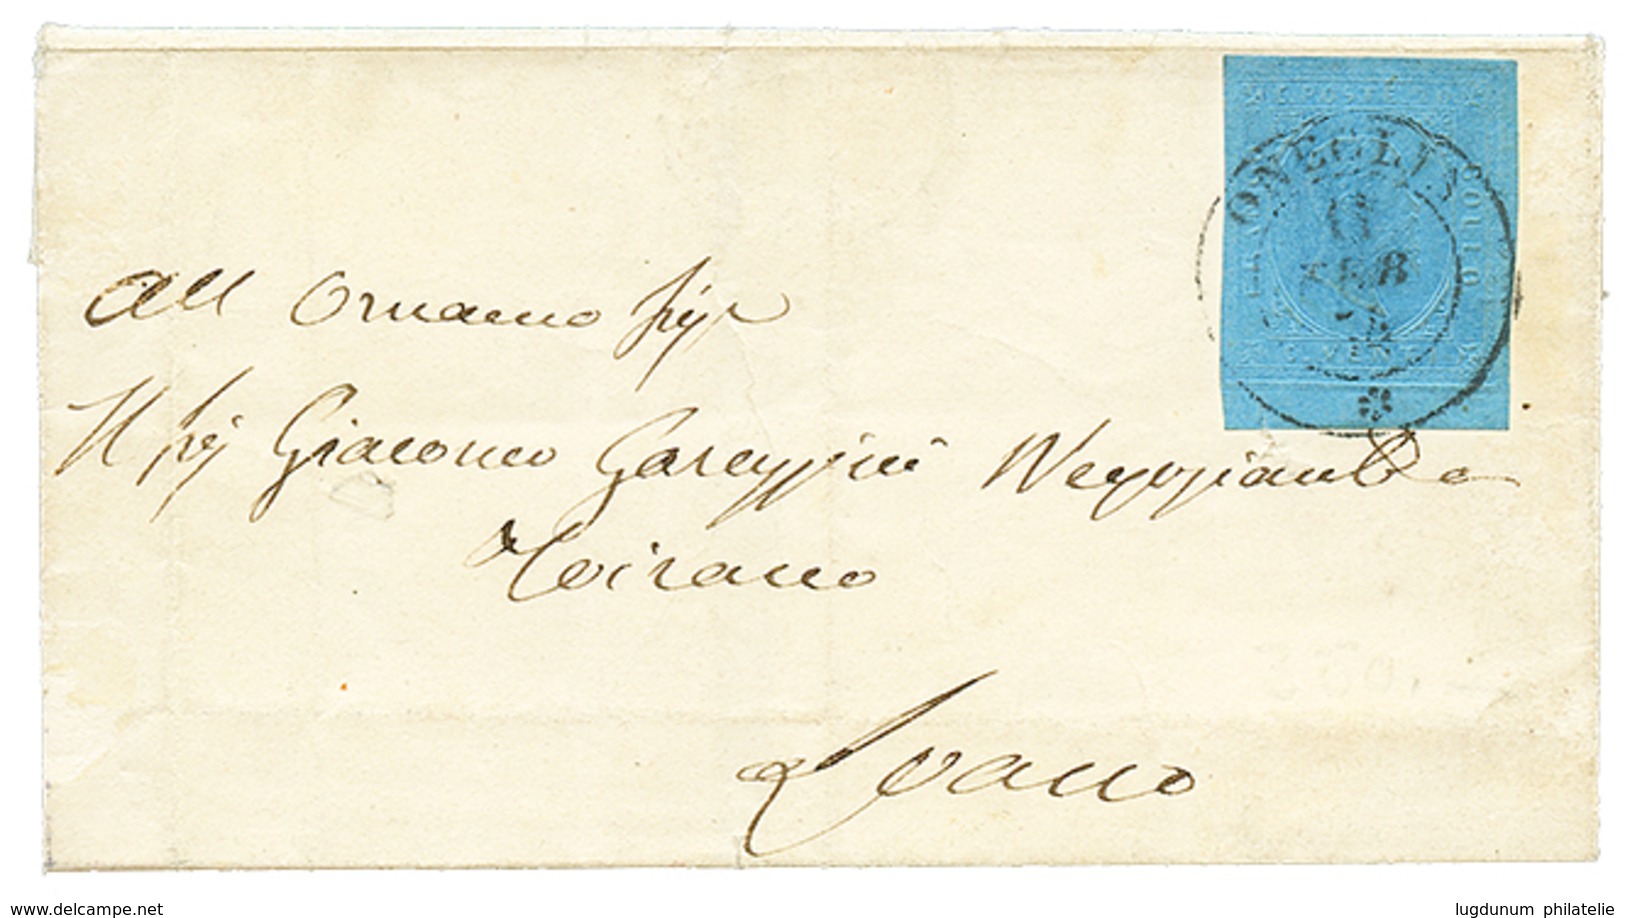 C. POSTE 20
BOLLO
C. VENTI
ONEGLIA
11
FEB
54
All Ornamo Sigr
Il Sig Giacomo Garezzini Negoziante
Toirano
Loano
www.delcampe.net
lugdunum philatelie